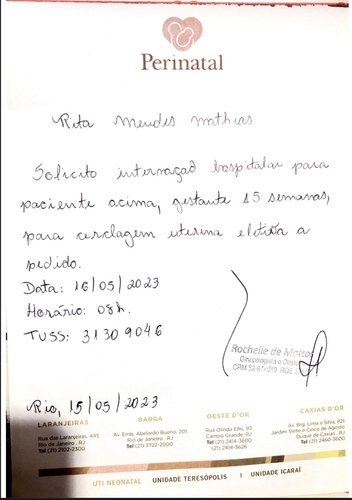 Perinatal
Rita Mendes Mathias
Solicito internação hospitalar para
paciente acima, gestante 15 semanas,
para cerclagem uterina eletiva a
pedido.
Data: 16/05/2023
Horário: 08h.
TUSS: 31309046
Rochelle de Mattos
Ginecologista e Obste
CRM 52-
Rio, 15/05/2023
LARANJEIRAS
Rua das Laranjeiras, 445
Rio de Janeiro . RJ
Tel (21) 2102-2300
BARRA
Av. Emb. Abelardo Bueno, 201
Rio de Janeiro . RJ
Tel (21) 3722-2000
OESTE D'OR
Rua Olinda Ellis, 93
Campo Grande, RJ
Tel (21) 2414-3600
(21) 2414-3626
CAXIAS D'OR
Av. Brg. Lima e Silva, 821
Jardim Vinte e Cinco de Agosto
Duque de Caxias . RJ
Tel (21) 2460-3000
UTI NEONATAL UNIDADE TERESÓPOLIS | UNIDADE ICARAÍ